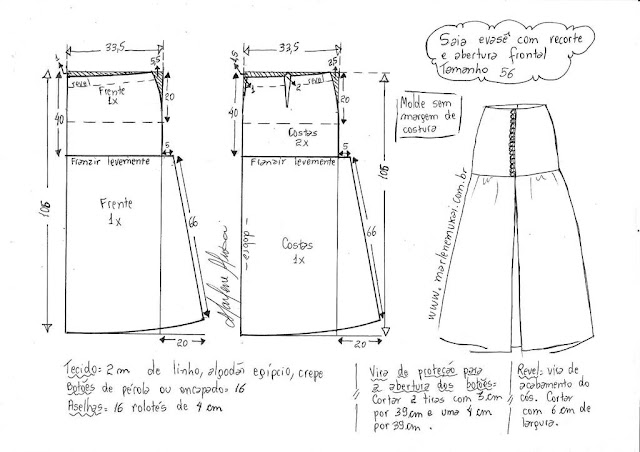 Saia evasê com recorte
e abertura frontal
Tamanho 56
33,5
1
5,5
revel
Frente
1x
20
40
Franzir levemente
5
Frente
1x
105
66
20
33,5
1,5
25
revel
1
2
20
40
Costas
2x
Franzir levemente
5
- dobra -
Costas
1x
105
66
20
Marlene Mukai
Molde sem
margem de
costura
www.marlenemukai.com.br
Tecido: 2m de linho, algodão egípcio, crepe
Botões de pérola ou encapado: 16
Aselhas: 16 rolotês de 4 cm
Vira de proteção para
a abertura dos botões:
Cortar 2 tiras com 3 cm
por 39 cm e uma 4 cm
por 39 cm.
Revel: vira de
acabamento do
cós. Cortar
com 6 cm de
largura.